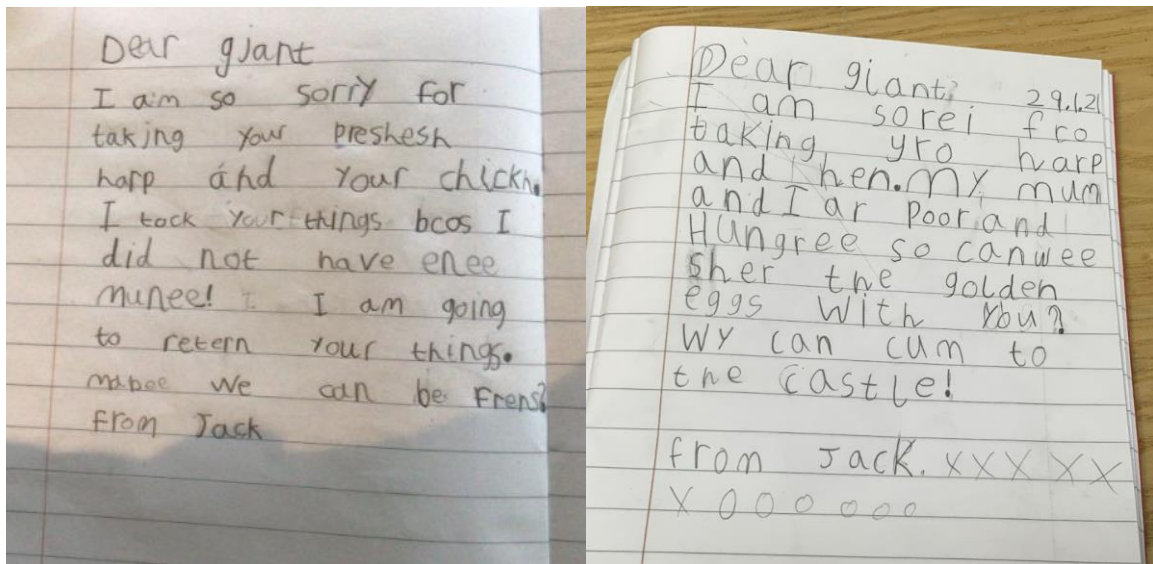 Dear giant
I am so sorry for
taking your preshesh
harp and your chickn.
I tock your things bcos I
did not have enee
munee! I am going
to retern your things.
mabee we can be frens?
from Jack
Dear giant
29.1.21
I am sorei fro
taking yro harp
and hen. My mum
and I ar poor and
Hungree so can wee
sher the golden
eggs with you?
Wy can cum to
the castle!
from Jack. xxxxx
x000000